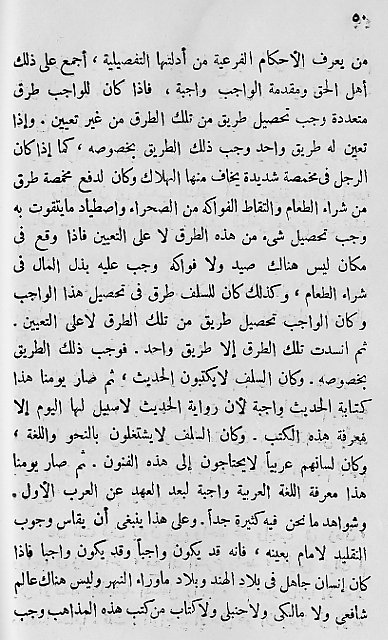 ٥٠
من يعرف الأحكام الفرعية من أدلتها التفصيلية ، أجمع على ذلك
أهل الحق ومقدمة الواجب واجبة ، فاذا كان للواجب طرق
متعددة وجب تحصيل طريق من تلك الطرق من غير تعيين . وإذا
تعين له طريق واحد وجب ذلك الطريق بخصوصه ، كما إذا كان
الرجل فى مخمصة شديدة يخاف منها الهلاك وكان لدفع مخمصة طرق
من شراء الطعام والتقاط الفواكه من الصحراء واصطياد مايتقوت به
وجب تحصيل شىء من هذه الطرق لا على التعيين فاذا وقع فى
مكان ليس هناك صيد ولا فواكه وجب عليه بذل المال فى
شراء الطعام ، وكذلك كان للسلف طرق فى تحصيل هذا الواجب
وكان الواجب تحصيل طريق من تلك الطرق لاعلى التعيين .
ثم انسدت تلك الطرق إلا طريق واحد . فوجب ذلك الطريق
بخصوصه . وكان السلف لايكتبون الحديث ، ثم صار يومنا هذا
كتابة الحديث واجبة لأن رواية الحديث لاسبيل لها اليوم إلا
بمعرفة هذه الكتب . وكان السلف لايشتغلون بالنحو واللغة ،
وكان لسانهم عربياً لايحتاجون إلى هذه الفنون . ثم صار يومنا
هذا معرفة اللغة العربية واجبة لبعد العهد عن العرب الأول .
وشواهد ما نحن فيه كثيرة جداً . وعلى هذا ينبغى أن يقاس وجوب
التقليد لامام بعينه ، فانه قد يكون واجباً وقد يكون واجبا فاذا
كان إنسان جاهل فى بلاد الهند وبلاد ماوراء النهر وليس هناك عالم
شافعى ولا مالكى ولاحنبلى ولا كتاب من كتب هذه المذاهب وجب